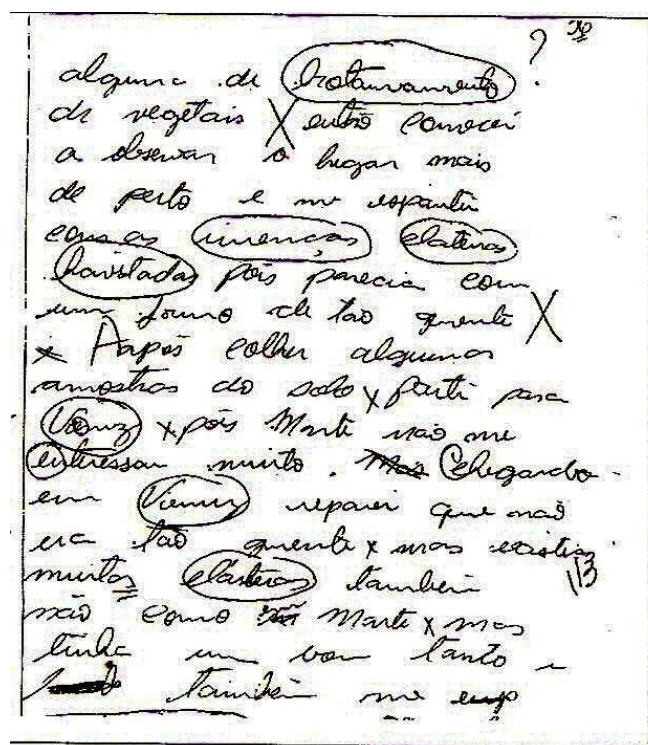 ?
alguma de brotamvamento
de vegetais X então comecei
a observar o lugar mais
de perto e me espantei
com as imenças clateras
havistadas pois parecia com
um forno de tão quente X
x Aapós colher algumas
amostras do solo x parti para
x pois Marte não me
enteressou muito. Mas Chegando
em Viemuz reparei que não
era tão quente x mas existia
muitas clateras também
não como Marte x mas
tinha um bom tanto e
também me